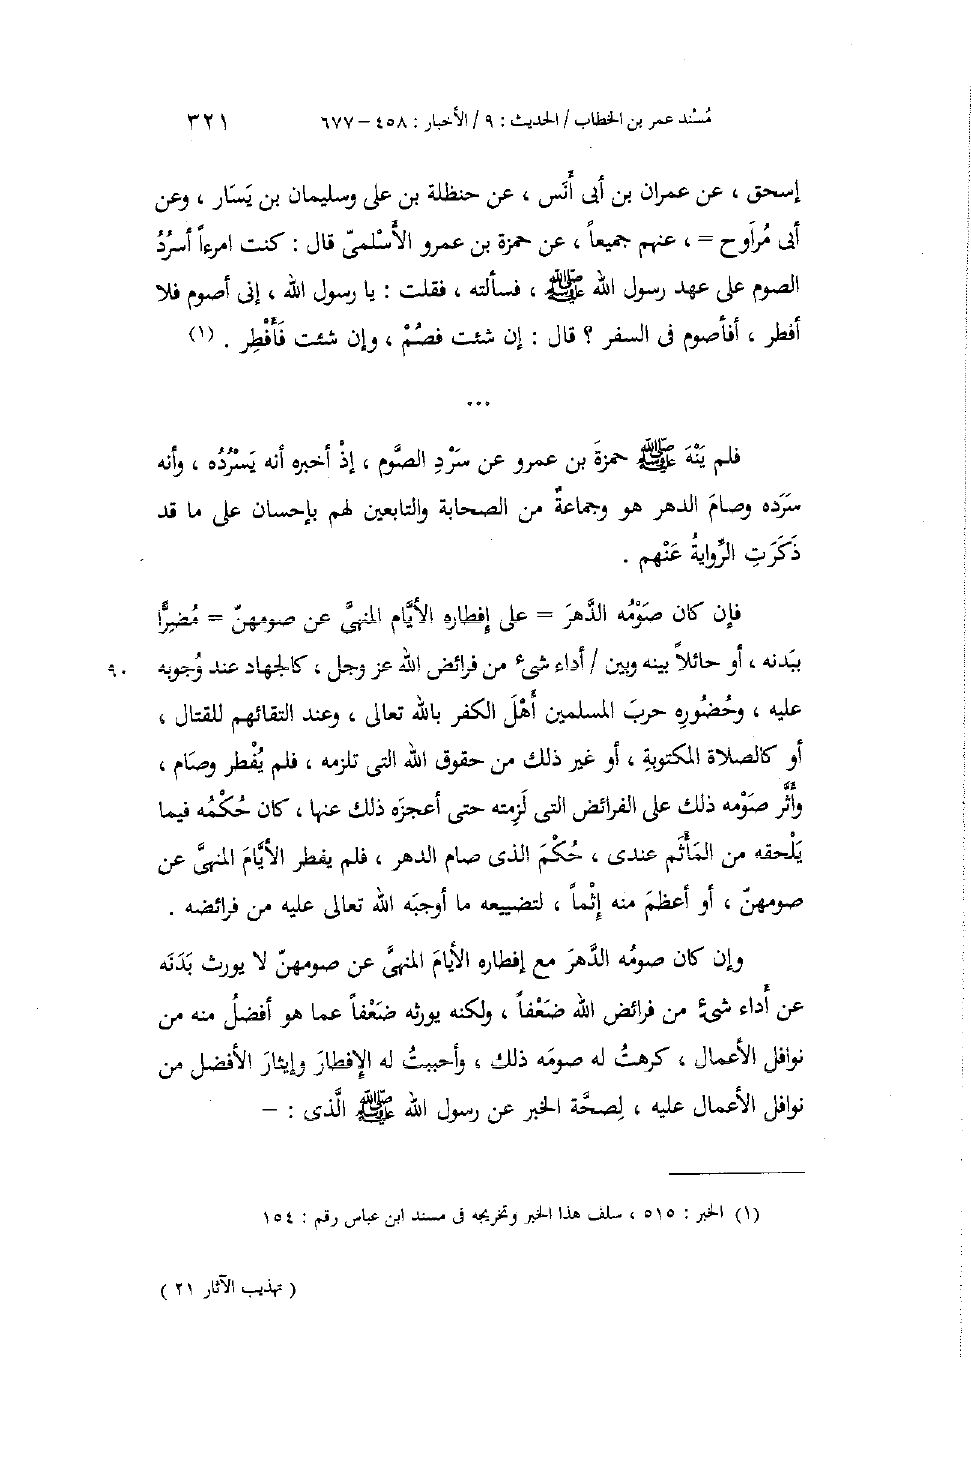 مُسْند عمر بن الخطاب / الحديث : ٩ / الأخبار : ٤٥٨ – ٦٧٧ ٣٢١
إسحق ، عن عمران بن أبى أَنَس ، عن حنظلة بن على وسليمان بن يَسَار ، وعن
أبى مُرَاوح = ، عنهم جميعاً ، عن حمزة بن عمرو الأَسْلمىّ قال : كنت امرءاً أسرُدُ
الصوم على عهد رسول الله ﷺ ، فسألته ، فقلت : يا رسول الله ، إنى أصوم فلا
أفطر ، أفأصوم فى السفر ؟ قال : إن شئت فصُمْ ، وإن شئت فَأَفْطِر . (١)
...
فلم يَنْهَ ﷺ حمزةَ بن عمرو عن سَرْدِ الصَّوم ، إذْ أخبره أنه يَسْرُدُه ، وأنه
سَرَده وصامَ الدهر هو وجماعةٌ من الصحابة والتابعين لهم بإحسان على ما قد
ذَكَرَتِ الرِّوايةُ عَنْهم .
فإن كان صَوْمُه الدَّهرَ = على إفطاره الأيَّام المنهىَّ عن صومهنّ = مُضِرًّا
ببَدنه ، أو حائلاً بينه وبين / أداء شىء من فرائض الله عز وجل ، كالجهاد عند وُجوبه ٩٠
عليه ، وحُضُورِه حربَ المسلمين أَهْلَ الكفر بالله تعالى ، وعند التقائهم للقتال ،
أو كالصلاة المكتوبةِ ، أو غير ذلك من حقوق الله التى تلزمه ، فلم يُفْطر وصَام ،
وأَثَّر صَوْمه ذلك على الفرائض التى لَزِمته حتى أعجزَه ذلك عنها ، كان حُكْمُه فيما
يَلْحقه من المَأْثَم عندى ، حُكْمَ الذى صام الدهر ، فلم يفطر الأيَّامَ المنهىَّ عن
صومهنّ ، أو أعظمَ منه إثْماً ، لتضييعه ما أوجبَه الله تعالى عليه من فرائضه .
وإن كان صومُه الدَّهرَ مع إفطاره الأيامَ المنهىَّ عن صومهنّ لا يورث بَدَنَه
عن أَداء شىءٍ من فرائض الله ضَعْفاً ، ولكنه يورثه ضَعْفاً عما هو أفضلُ منه من
نوافل الأعمال ، كرهتُ له صومَه ذلك ، وأحببتُ له الإفطارَ وإيثارَ الأفضل من
نوافل الأعمال عليه ، لِصحَّة الخبر عن رسول الله ﷺ الَّذى : –
(١) الخبر : ٥١٥ ، سلف هذا الخبر وتخريجه فى مسند ابن عباس رقم : ١٥٤
( تهذيب الآثار ٢١ )